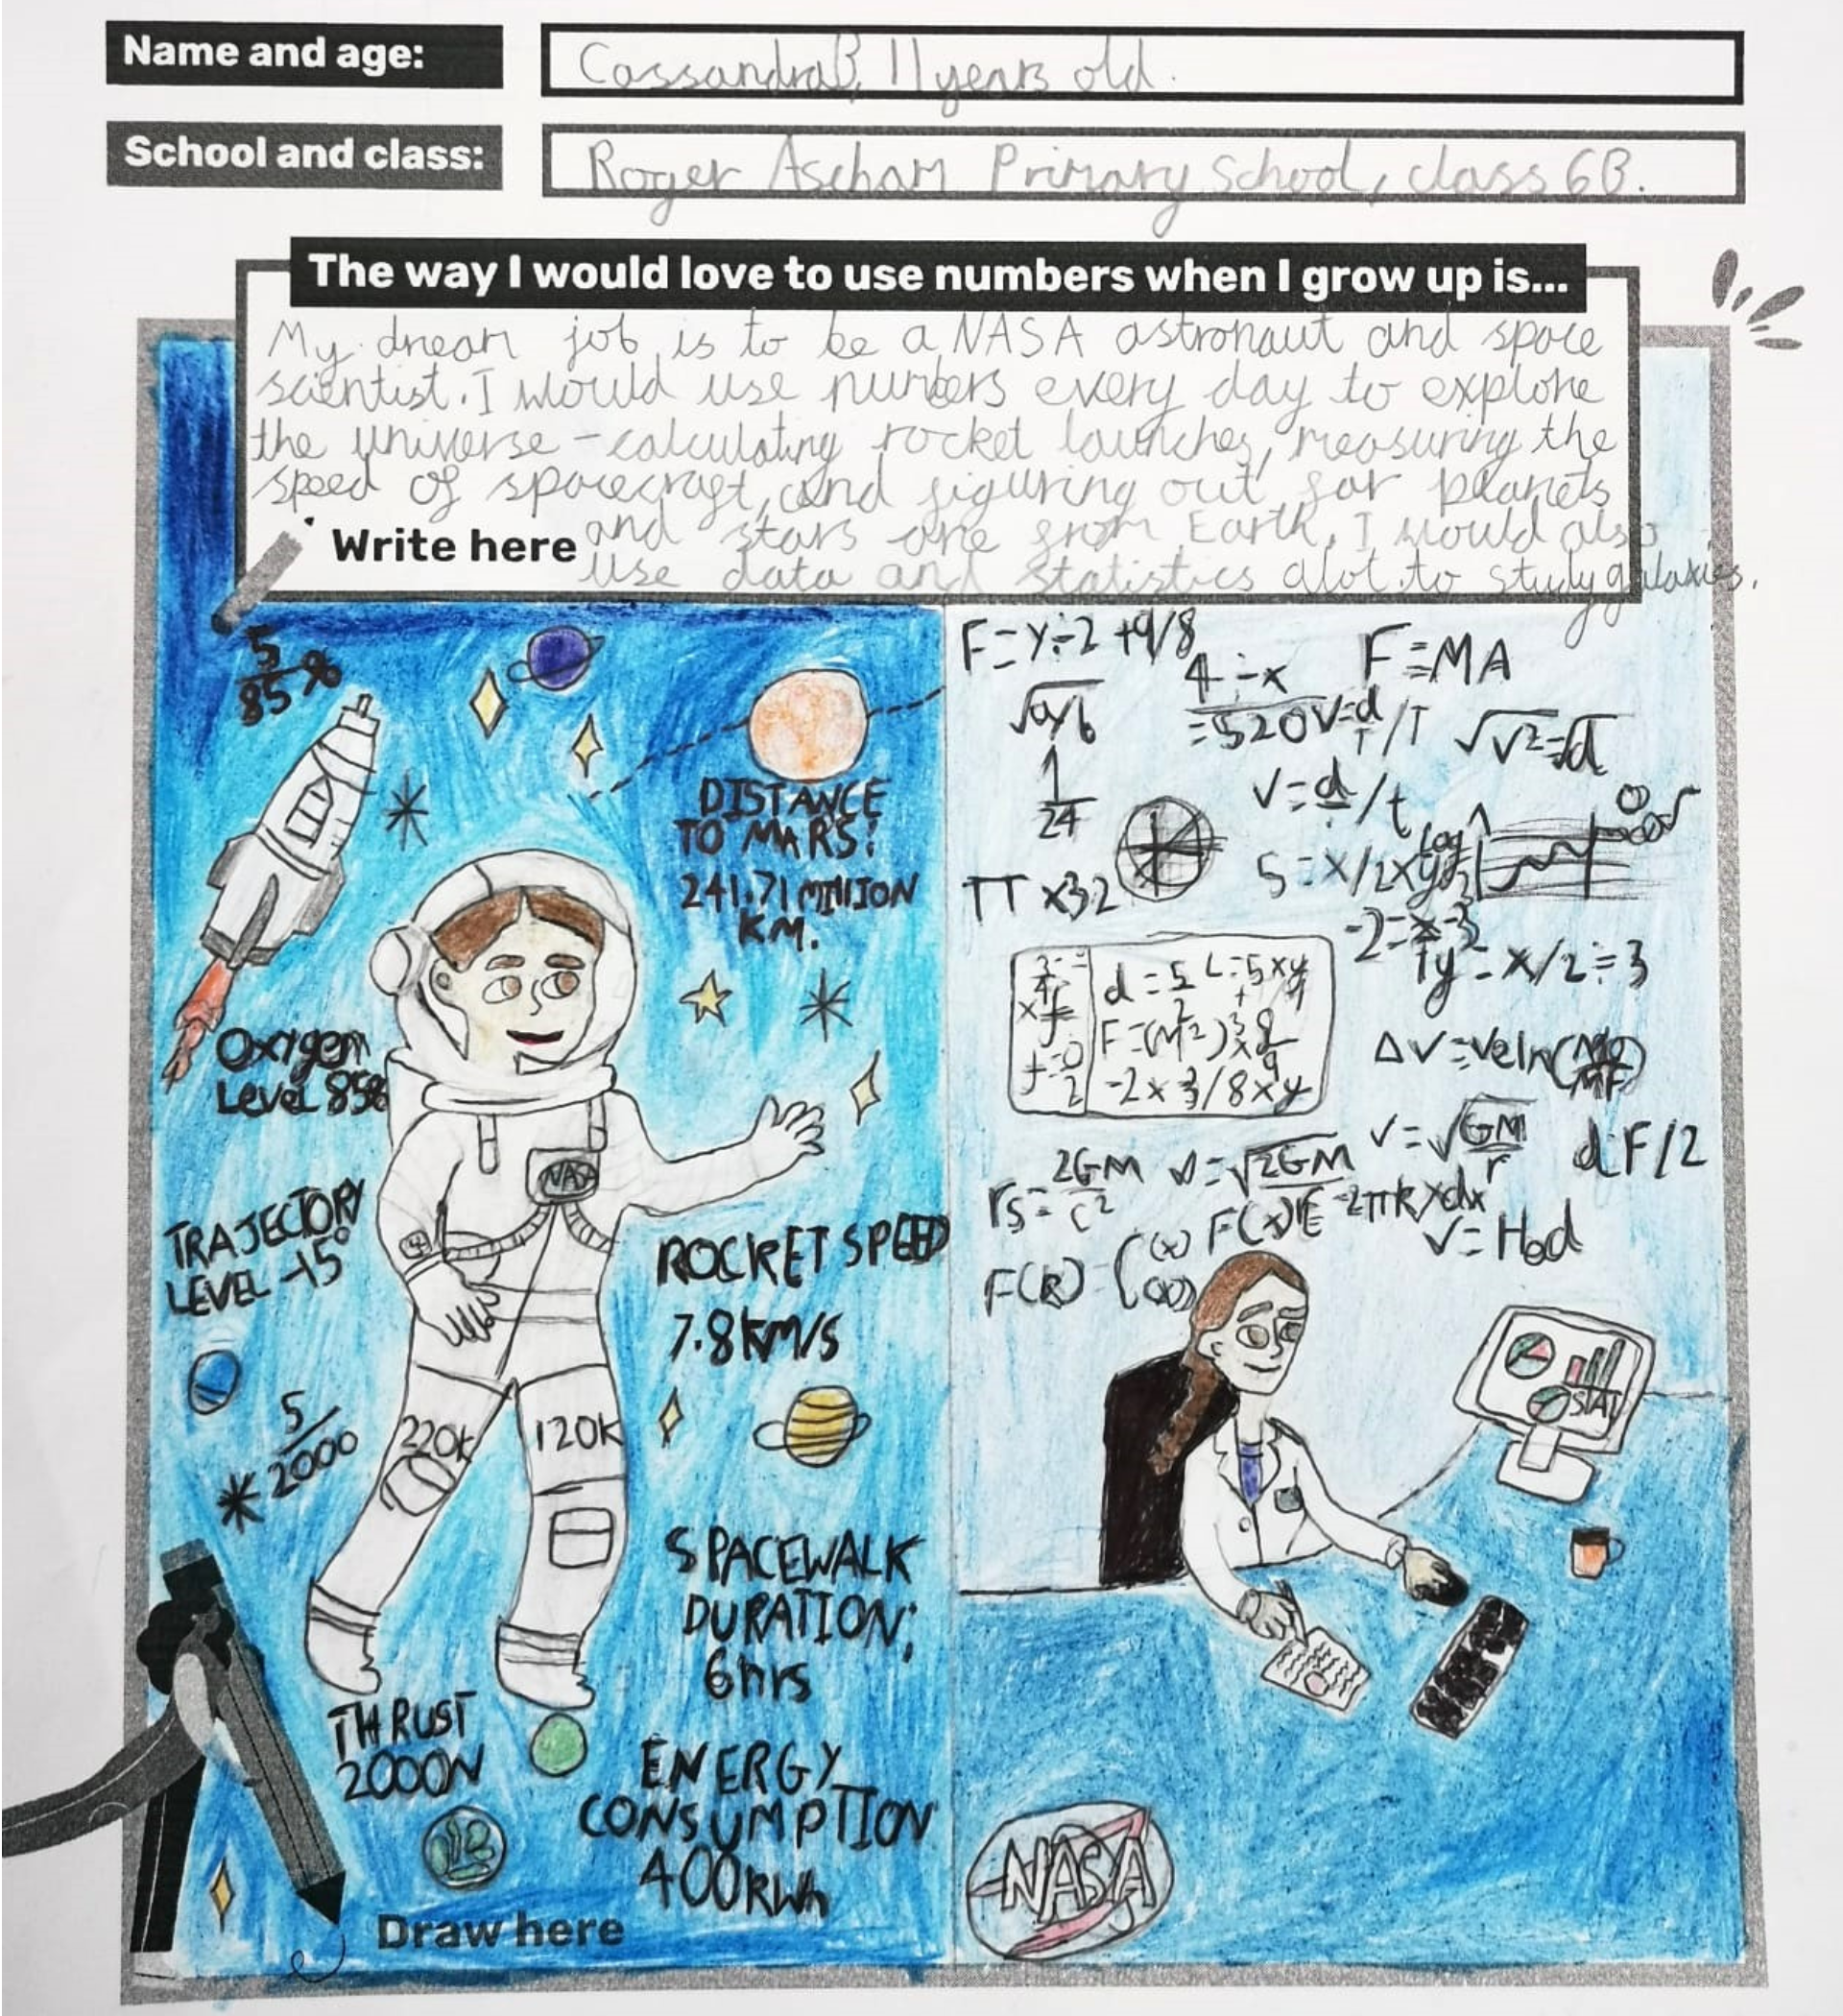 Name and age:
CassandraB, 11 years old.
School and class:
Roger Ascham Primary School, class 6B.
The way I would love to use numbers when I grow up is...
My dream job is to be a NASA astronaut and space
scientist. I would use numbers every day to explore
the universe - calculating rocket launches, measuring the
speed of spacecraft, and figuring out far planets
and stars are from Earth. I would also
Write here
use data and statistics alot to study galaxies.
5/85%
DISTANCE
TO MARS:
241.71 MILLION
KM.
Oxygen
Level 85%
NASA
TRAJECTORY
LEVEL -15°
ROCKET SPEED
7.8KM/S
220K
120K
5/2000
SPACEWALK
DURATION:
6hrs
THRUST
2000N
ENERGY
CONSUMPTION
400kWh
Draw here
F=y÷2+9/8
4÷x
=520
F=MA
√a/b
V=d/T/T
√V²=d
1/24
V=d/t
π x3.2
S=x/2xy
log
-2=x-3
y=x/2÷3
d=5/2
L=5xy
F=(M²)
-2x3/8xy
ΔV=Veln(M0/MF)
rs=2GM/c²
v=√2GM
v=√GM/r
dF/2
V=H0d
STAT
NASA